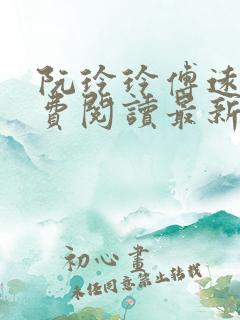 阮玲玲傅速
費閱讀最新
初心畫
未經同意禁止轉載